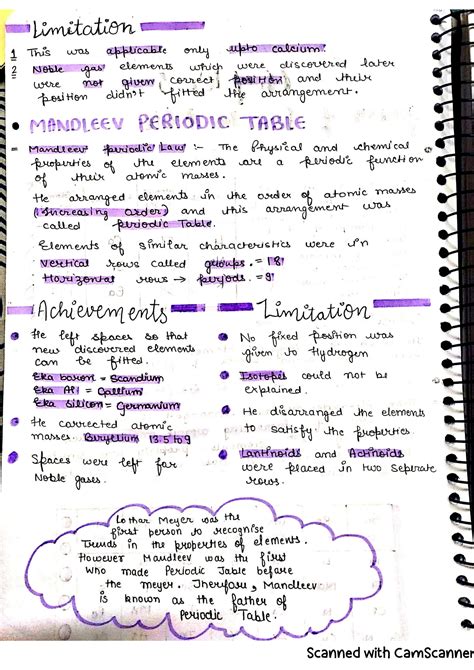 Limitation
1 This was applicable only upto calcium.
2 Noble gas elements which were discovered later
were not given correct position and their
position didn't fitted the arrangement.
• MANDLEEV PERIODIC TABLE
Mandleev periodic Law :- The Physical and chemical
properties of the elements are a periodic function
of their atomic masses.
He arranged elements in the order of atomic masses
(Increasing order) and this arrangement was
called periodic Table.
Elements of similar characteristics were in
vertical rows called groups. = 18
Horizontal rows → periods. =
Achievements
• He left spaces so that
new discovered elements
can be fitted.
Eka boron = Scandium
Eka Al = Gallium
Eka Silicon = Germanium
• He corrected atomic
masses Beryllium 13.5 to 9
• Spaces were left for
Noble gases.
Limitation
• No fixed position was
given to Hydrogen
• Isotopes could not be
explained.
• He disarranged the elements
to satisfy the properties.
• Lantinoids and Actinoids
were placed in two seprate
rows.
Lothar Meyer was the
first person to recognise
Trends in the properties of elements.
However Mandleev was the first
who made Periodic Table before
the meyer. Therfore, Mandleev
is known as the father of
Periodic Table.
Scanned with CamScanner